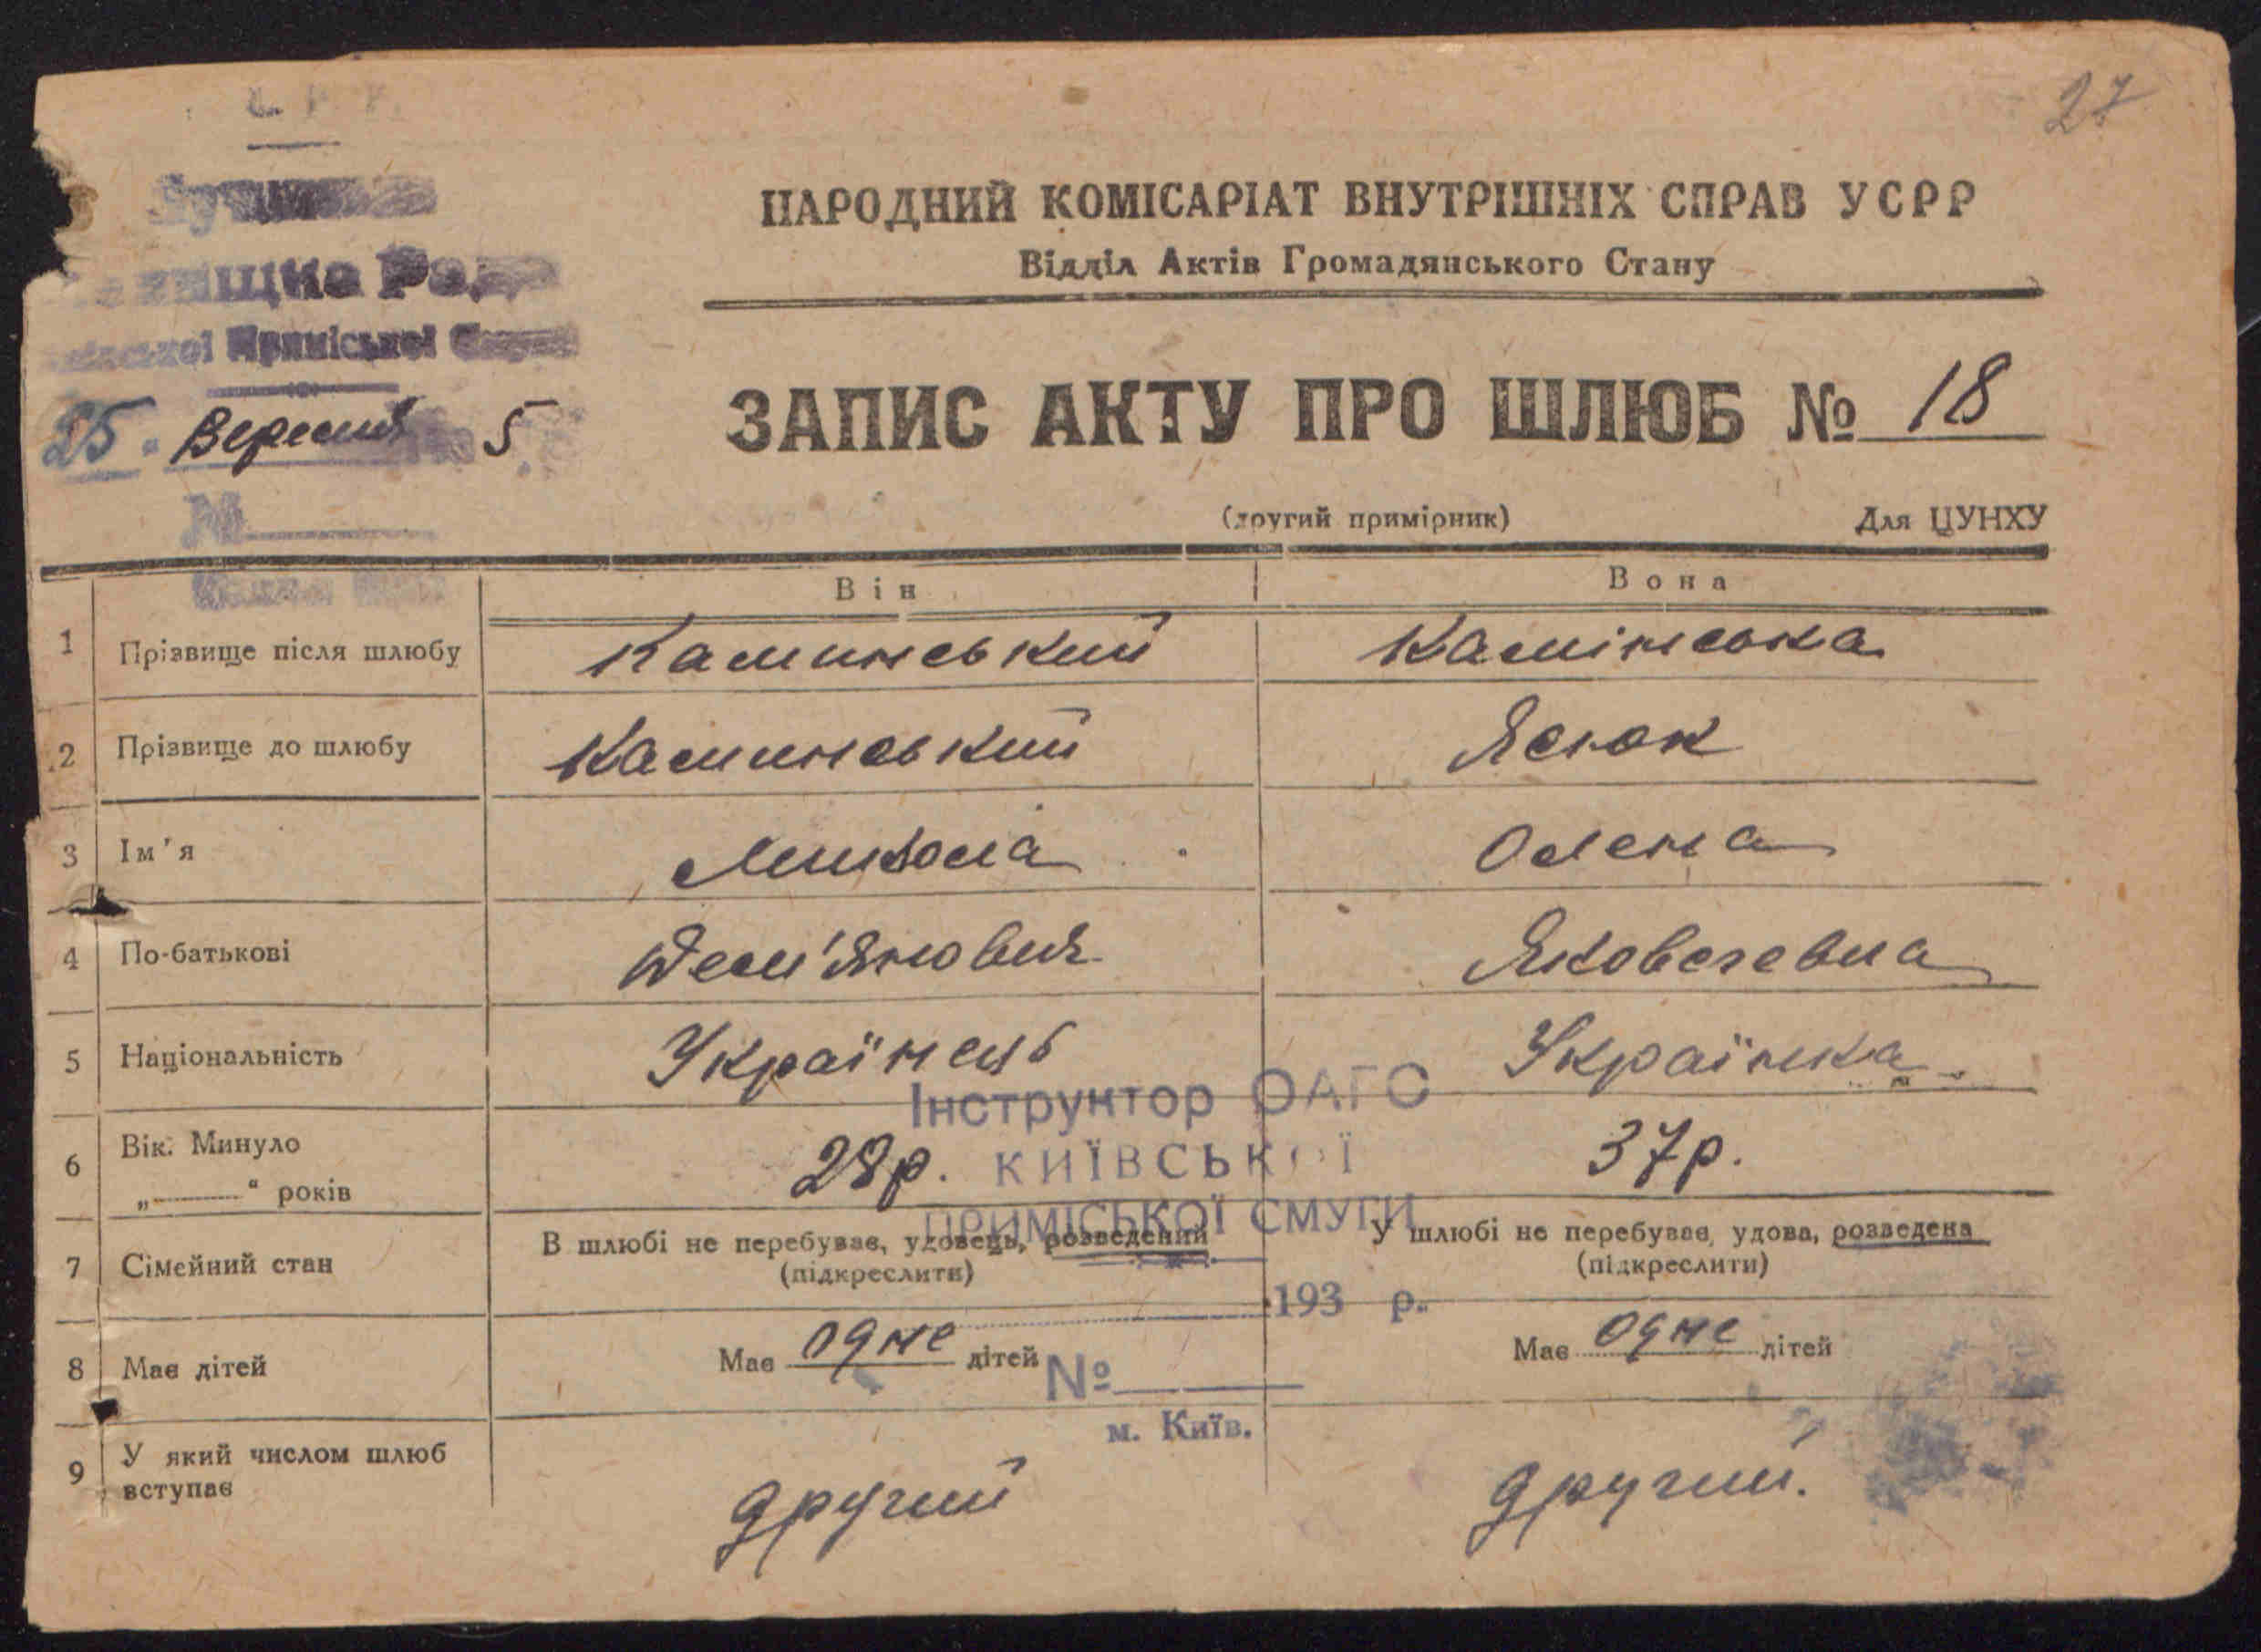 27
НАРОДНИЙ КОМІСАРІАТ ВНУТРІШНІХ СПРАВ УСРР
Відділ Актів Громадянського Стану
Приміської
25 Вересня 5
№
ЗАПИС АКТУ ПРО ШЛЮБ № 18
(другий примірник) Для ЦУНХУ
Він Вона
1 Прізвище після шлюбу Каминський Камінська
2 Прізвище до шлюбу Каминський Ясюк
3 Ім'я Микола Олена
4 По-батькові Дем'янович Яковлевна
5 Національність Українець Українка
Інструктор ОАГС
КИЇВСЬКОЇ
ПРИМІСЬКОЇ СМУГИ
193 р.
№
м. Київ.
6 Вік. Минуло
„——“ років 28р. 37р.
7 Сімейний стан В шлюбі не перебував, удовець, розведений У шлюбі не перебував, удова, розведена
(підкреслити) (підкреслити)
8 Має дітей Має одне дітей Має одне дітей
9 У який числом шлюб
вступає другий другий.